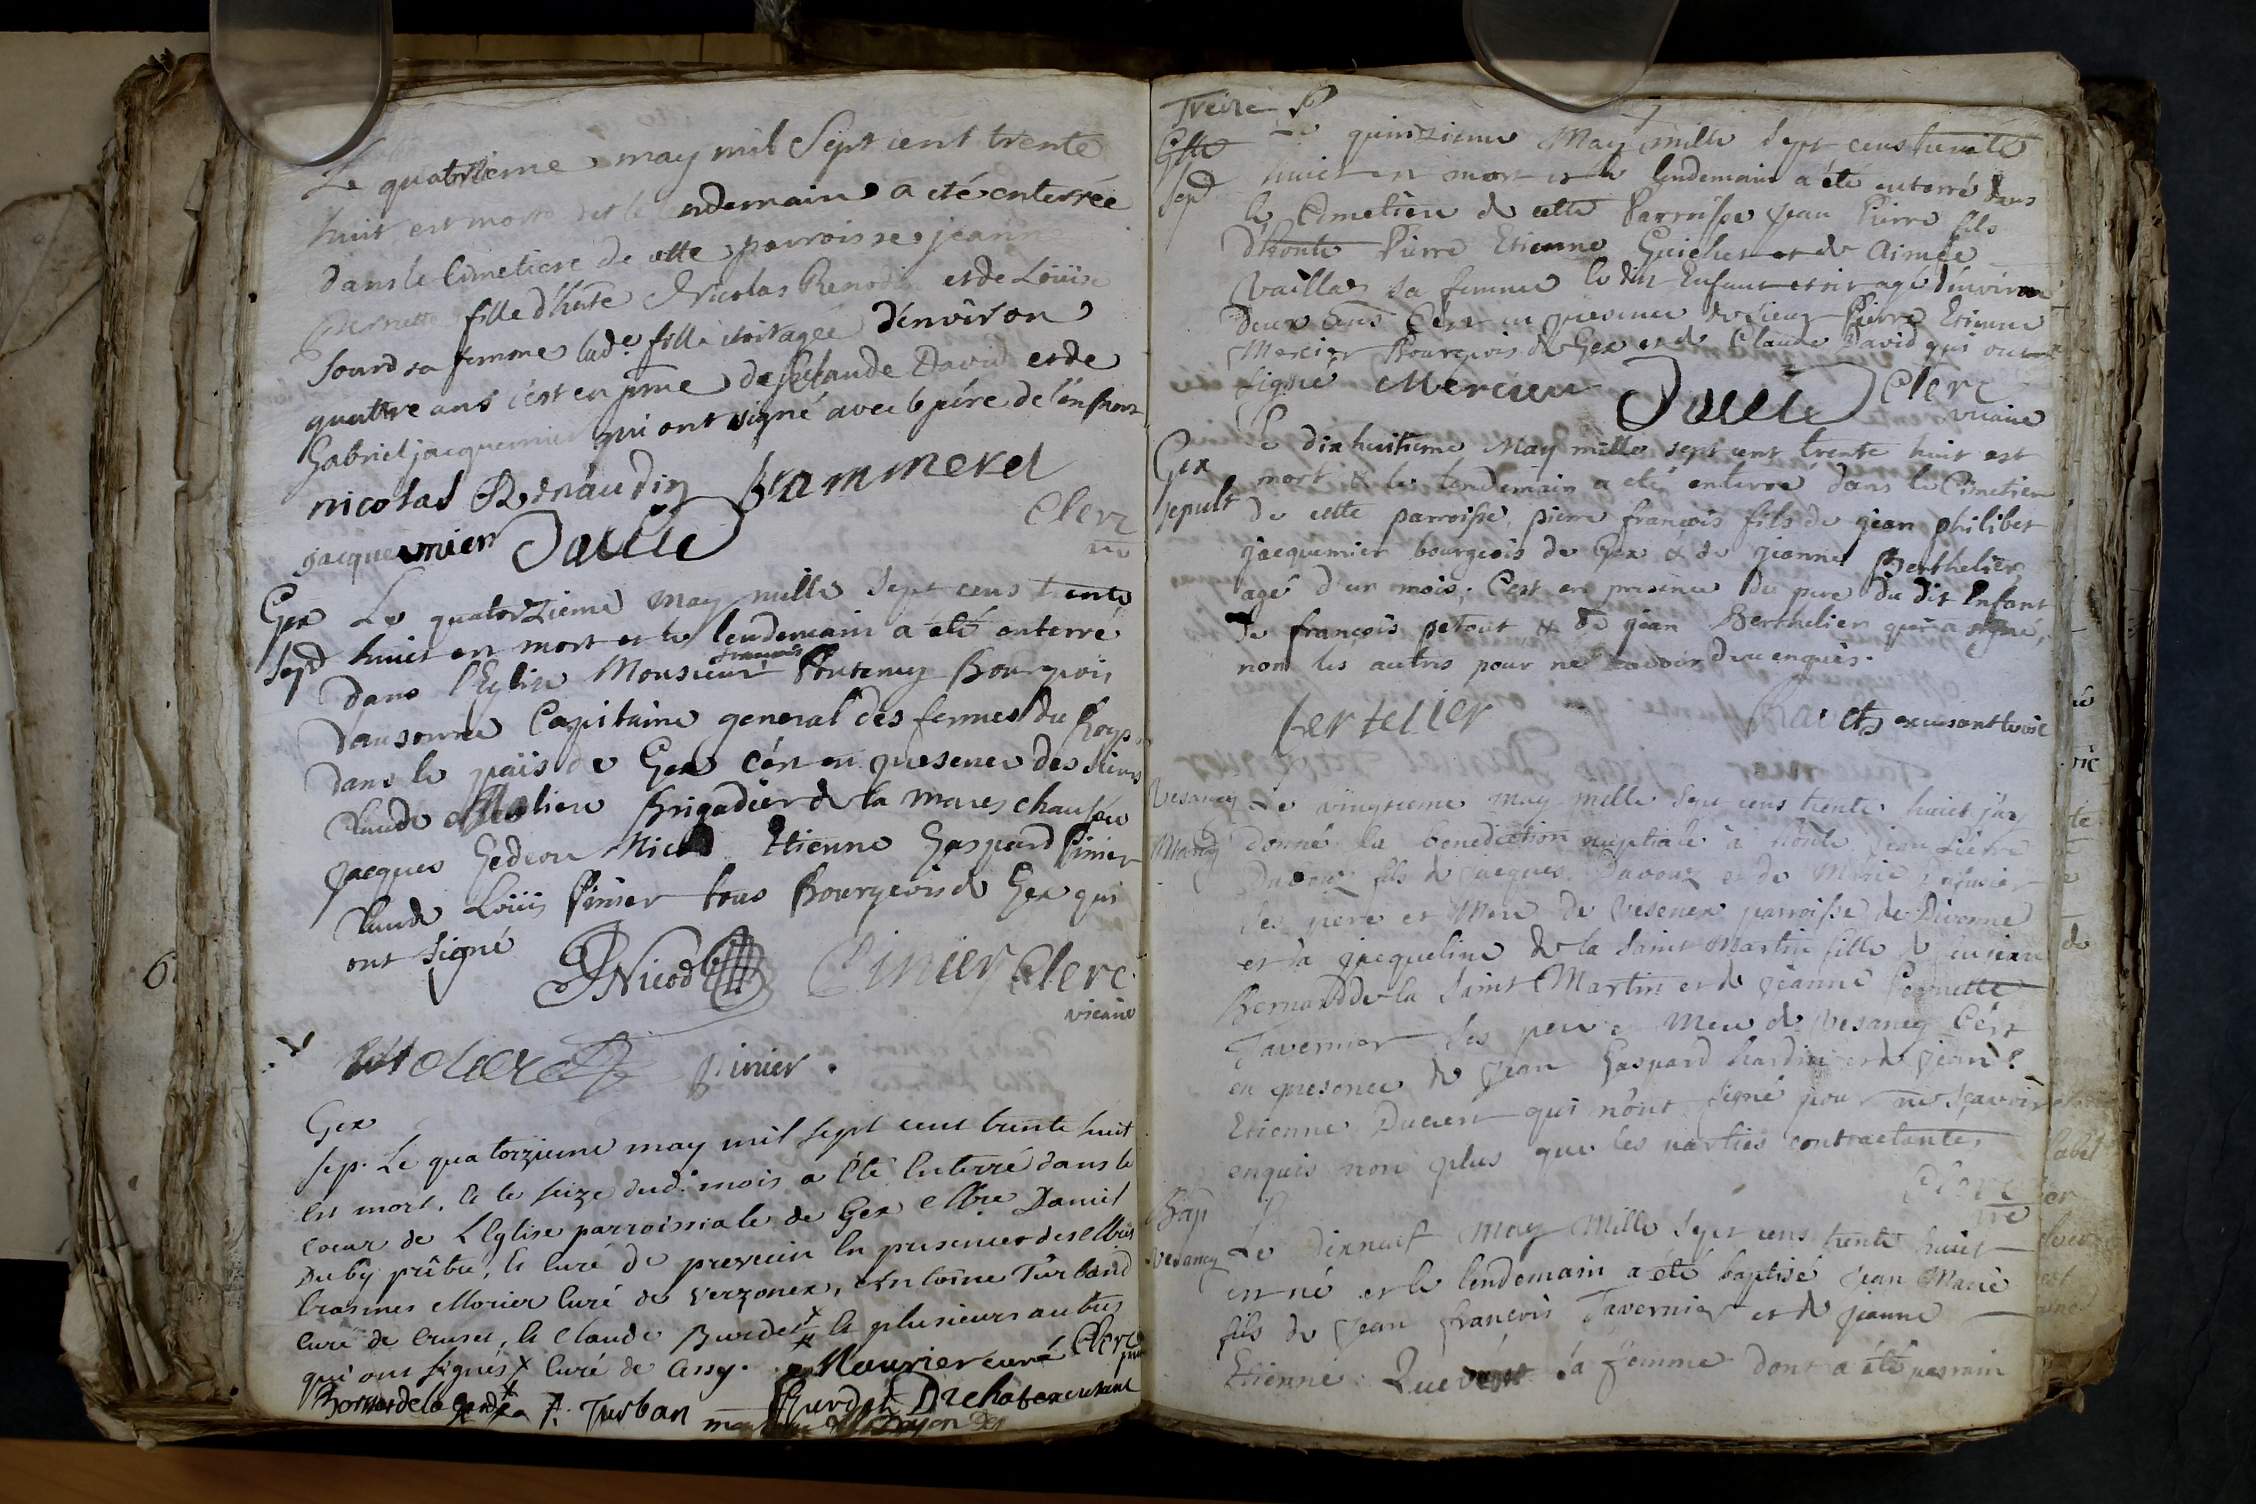 Le quatrieme may mil Sept cent trente
huit est morte et le lendemain a eté enterrée
dans le Cimetiere de cette parroisse jeann
Pernette fille d'hnte Nicolas Renod et de Loüise
Sourd sa femme lade. fille etoit agée d'environ
quattre ans c'est en pnce de Claude David et de
Gabriel jacquemier qui ont signé avec le pére de l'enfant
nicolas Renaudin
jacquemier David Clerc
vre
Gex Le quatorzieme May mille Sept cens trente
Sepd huict est mort et le lendemain a eté enterré
francois
dans l'Eglise Monsieur Bourgeois
d'ausonne Capitaine general des fermes du Roy
dans le païs de Gex c'est en presence des sieurs
Claude Moliere Brigadier de la Mareschaussée
jacques Gedeon Nicod Etienne Gaspard Pinier
Claude Loüis Pinier tous Bourgeois de Gex qui
ont signé
Nicod Pinier Clerc
vicaire
pinier.
Gex
sep. Le quatorzieme may mil sept cent trente huit
est mort, et le seize dud. mois a eté enterré dans le
coeur de L'Eglise parroissiale de Gex Mre Daniel
Duby prêtre, et curé de prevessin en presence des Mres
Erasmes Morier curé de verzonex, Antoine Turband
curé de Cruset, et Claude Burdet et plusieurs autres
qui ont signés x curé de Cessy. Maurier curé Clerc
Turban Burdet
Treize
Gex Le quinzieme May mille Sept cens trente
Sepd huict est mort et le lendemain a été enterré dans
le Cimetiere de cette Parroisse Jean Pierre fils
d'honte Pierre Etienne Guichet et de Aimée
Vaillas sa femme le dit Enfant etoit agé d'environ
deux ans C'est en presence de Sieur Pierre Etienne
Mercier Bourgeois de Gex et de Claude David qui ont
signé Mercier David Clerc
vicaire
Gex Le dix huitieme May mille sept cent trente huit est
mort & le lendemain a eté enterré dans le Cimetiere
sepult de cette parroisse, pierre françois fils de jean philibert
jacquemier bourgeois de Gex & de jeanne Berthelier
agé d'un mois; C'est en presence du pere du dit Enfant
de françois petout & de jean Berthelier qui a signé,
non les autres pour ne savoir de ce enquis.
bertelier
Vesancy Le vingtieme may mille Sept cens trente huict j'ay
Mariag donné la benediction nuptiale à honte jean Pierre
Davouz fils de jacques Davouz et de Marie
les pere et Mere de Vesenex parroisse de Divonne
et à jacqueline de la Saint Martin fille de feu jean
Bernard de la Saint Martin et de jeanne Pernette
Tavernier les pere & Mere de Vesancy C'est
en presence de jean Gaspard hardin et de jean
Etienne Ducret qui n'ont signé pour ne sçavoir
enquis non plus que les parties contractantes
Clerc
vre
Bap
Vesancy Le dixneuf May Mille Sept cens trente huict
est né et le lendemain a été baptisé jean Marie
fils de jean françois Tavernier et de jeanne
Etienne sa femme dont a été parrain